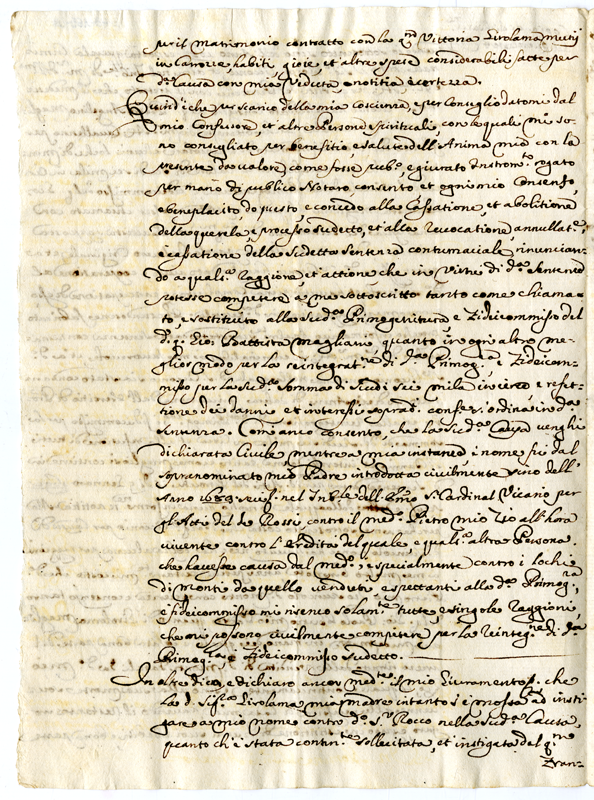 per il matrimonio contratto con la q.m Vittoria Girolama Mutij
in Carozze, habiti, gioie, et altre spese considerabili fatte per
d.a Causa con mia Veduta e notitia e certezza.
Quindi che per scarico della mia coscienza, e per Consiglio datomi dal
mio Confessore, et altre Persone Spirituali, con le quali mi so-
no consigliato per benefitio, e salute dell'Anima mia con la
presente da valere come fosse pub.o, e giurato Instrom.to rogato
per mano di publico Notaro consento et ogni mio Consenso,
e beneplacito do presto, e concedo alla Cassatione, et abolitione
della querela, e processo sudetto, et alla Revocatione, annullat.e,
e cassatione della sudetta Sentenza contumaciale, rinuncian-
do a quals.a Raggione, et attione che in Virtu di d.a Sentenza
potesse competere a me sottoscritto tanto come chiama-
to, e sostituito alla sud.a Primogenitura e Fideicommisso del
d.o q. Gio: Battista Magliani quanto in ogni altro me-
glior modo per la reintegrat.ne di d.a Primog.ra e Fideicom-
misso per la sud.a Somma di Scudi Sei mila in circa e refet-
tione dei danni et interessi sopradi. ordina in d.a
Sentenza. Come anco consento, che la sud.a Causa venghi
dichiarata Civile mentre a mia instanza e nome fu dal
sopranominato mio Padre introdotta civilmente sino dell'
Anno 1683 nel Trib.le dell' Em.o S. Cardinal Vicario per
gl'Atti del de Rossi, contro il med.o Pietro mio Zio all'hora
vivente contro l'Eredità del quale, e quals.a altra Persona
che havesse causa dal med.o, e specialmente contro i lochi
di monti da quello venduti, e spettanti alla d.a Primog.ra
e fideicommisso mi riservo solam.te tutte, e singole Raggioni,
che mi possono civilmente competere per la Reinteg.ne di d.a
Primog.ra, e Fideicommisso sudetto.
In oltre dico, e dichiaro ancor med.te il mio Giuramento che
la d. Sig.ra Girolama mia madre in tanto s'è mossa ad insti-
gare a mio nome contro d.o S.r Rocco nella sud.a Causa,
quanto ch'è stata contin.te sollecitata, et instigata dal q.m
Fran=